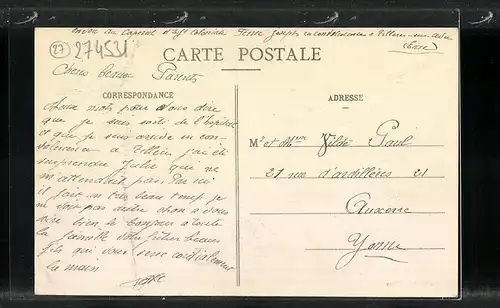 envoi du Caporal d'Inf coloniale Joseph en convalescence a Villers-sur-
(Eure)
27
274531
CARTE POSTALE
Chers beaux Parents
CORRESPONDANCE
ADRESSE
Deux mots pour vous dire
que je suis sorti de l'hopital
et que je suis arrivé en con-
valescence a Villers j'ai été
surprendre Julie qui ne
m'attendait pas, Par ici
il fait un tres beau temps je
ne voit pas autre chose a vous
dire bien le bonjour a toute
la famille votre futur beau
fils qui vous serre cordialement
la main
Mr et Mme Vildé Paul
21 rue d'ardillères 21
Auxerre
Yonne